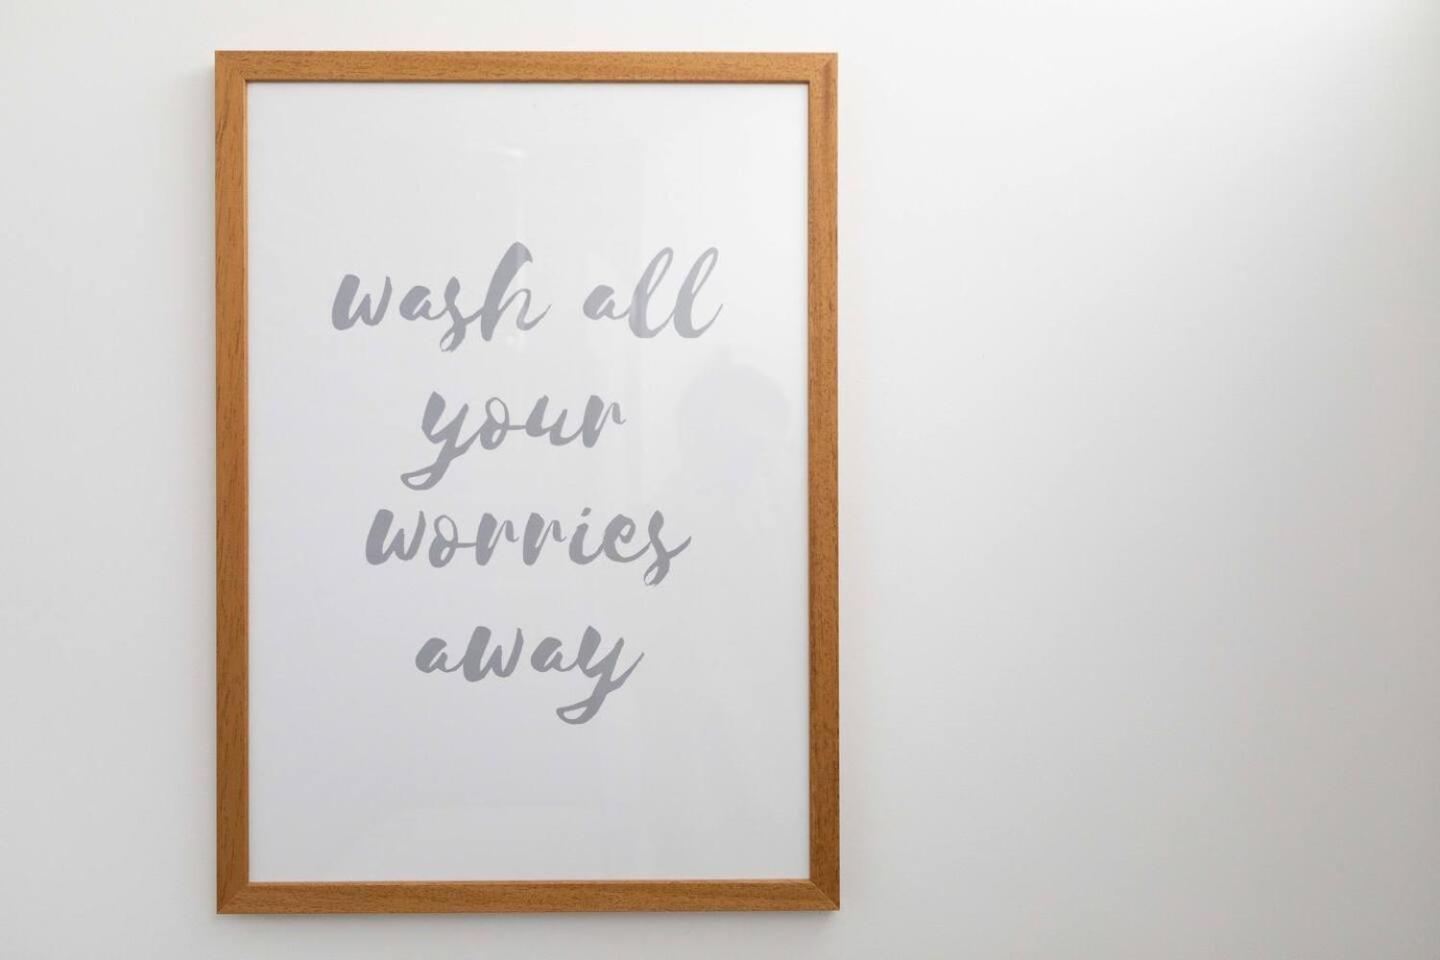 wash all
your
worries
away